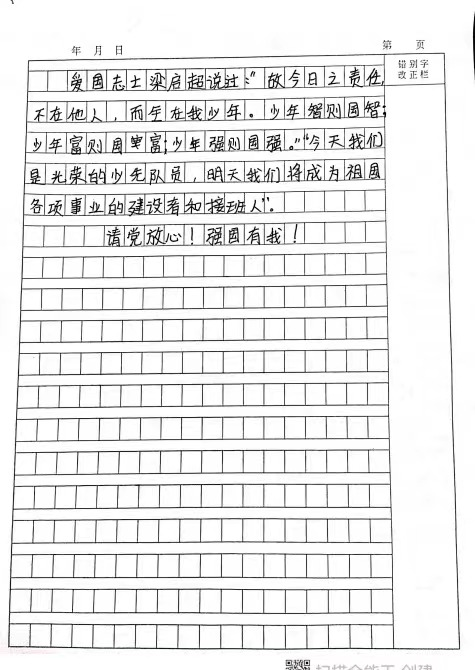 年 月 日
第 页
错别字
改正栏
爱国志士梁启超说过:"故今日之责任,
不在他人,而在我少年。少年智则国智;
少年富则国富;少年强则国强。""今天我们
是光荣的少先队员,明天我们将成为祖国
各项事业的建设者和接班人"。
请党放心!强国有我!